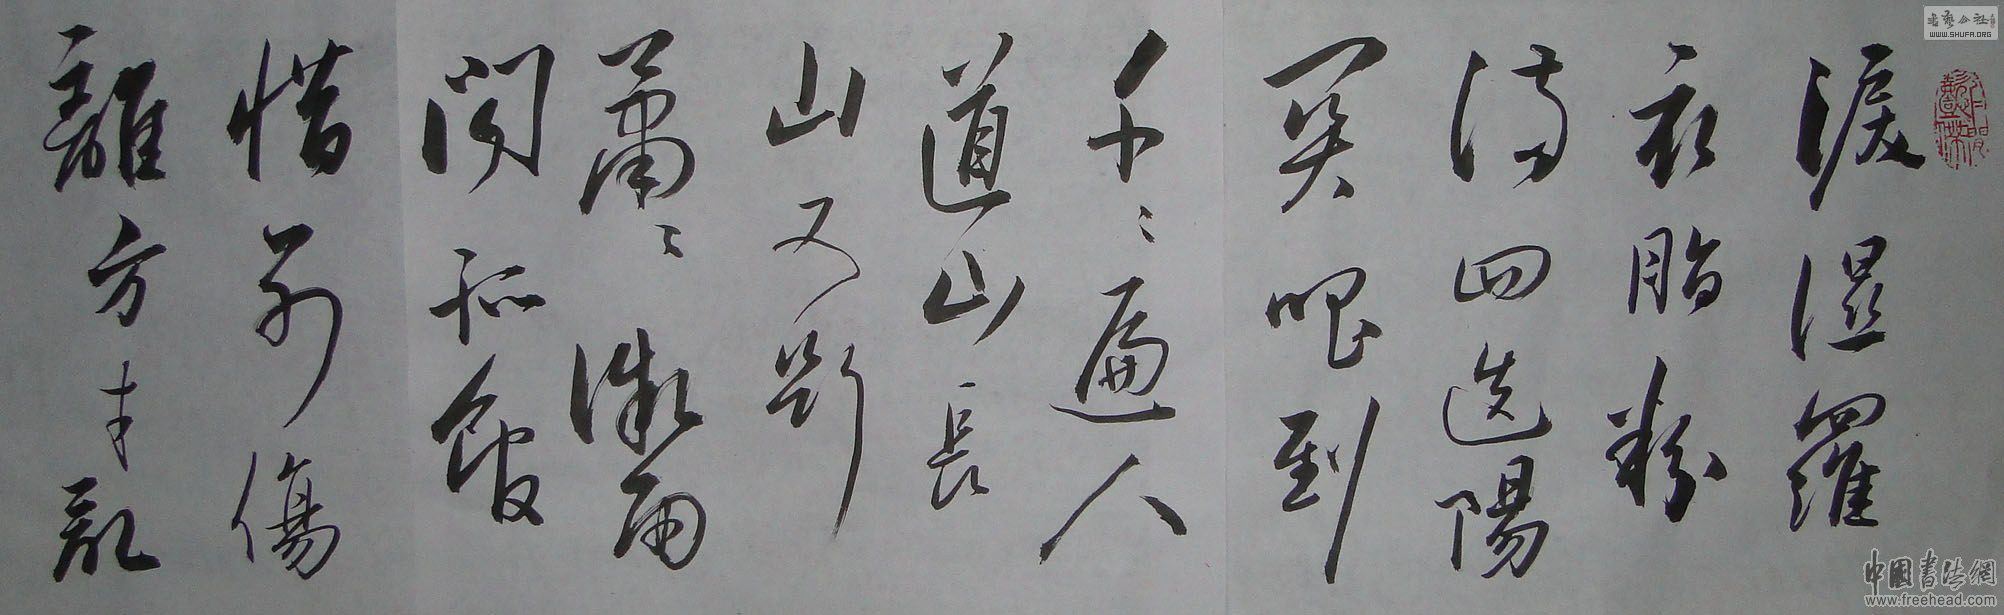 淚湿羅
衣脂粉
満四迭陽
関唱到
千々遍人
道山長
山又断
蕭々微雨
闻孤館
惜别傷
離方寸乱
书艺公社
WWW.SHUFA.ORG
中國書法網
www.freehead.com